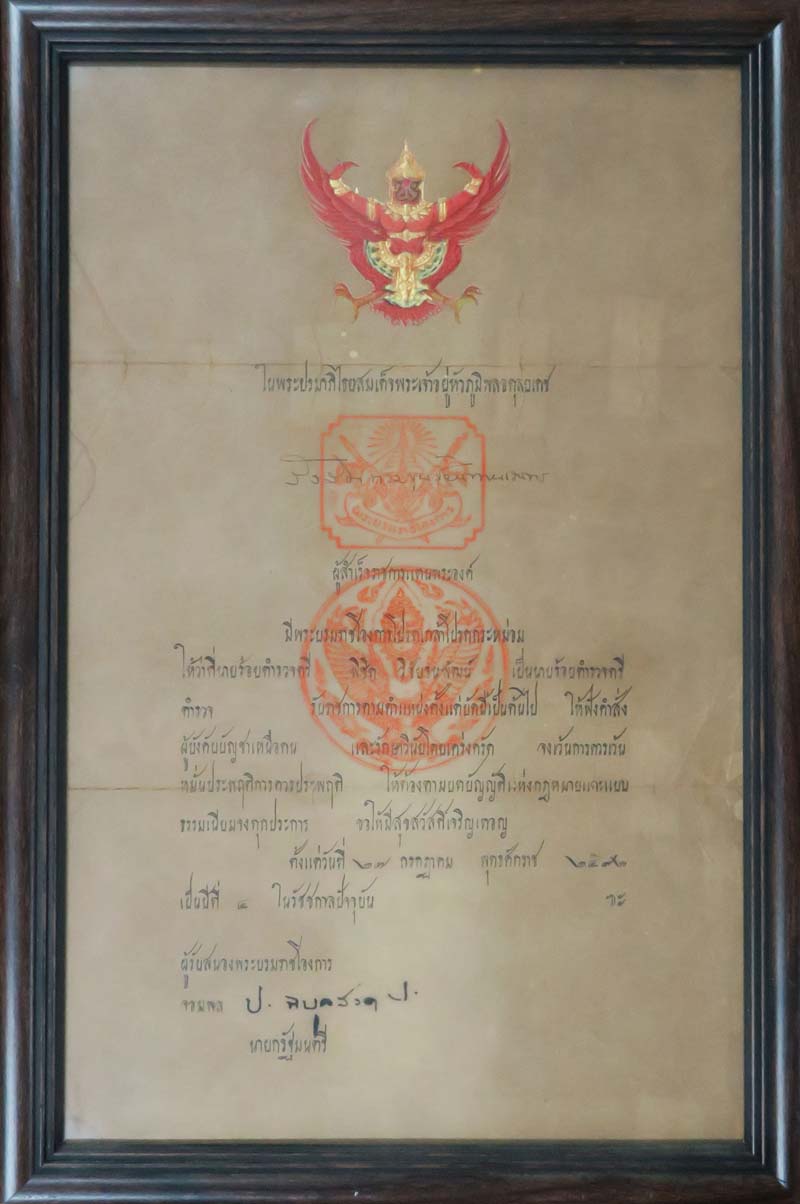 ในพระปรมาภิไธยสมเด็จพระเจ้าอยู่หัวภูมิพลอดุลยเดช
พระบรมราชโองการ
ผู้สำเร็จราชการแทนพระองค์
มีพระบรมราชโองการโปรดเกล้าโปรดกระหม่อม
ให้ว่าที่นายร้อยตำรวจตรี พิชิต วิชัยธนพัฒน์ เป็นนายร้อยตำรวจตรี
ตำรวจ รับราชการตามตำแหน่งตั้งแต่บัดนี้เป็นต้นไป ให้ฟังคำสั่ง
ผู้บังคับบัญชาเหนือตน และรักษาวินัยโดยเคร่งครัด จงเว้นการควรเว้น
หมั่นประพฤติการควรประพฤติ ให้ต้องตามบทบัญญัติแห่งกฎหมายและแบบ
ธรรมเนียมจงทุกประการ ขอให้มีสุขสวัสดิ์เจริญเทอญ
ตั้งแต่วันที่ ๒๗ กรกฎาคม พุทธศักราช ๒๔๙๒
เป็นปีที่ ๔ ในรัชชกาลปัจจุบัน
ผู้รับสนองพระบรมราชโองการ
จอมพล ป. พิบูลสงคราม
นายกรัฐมนตรี